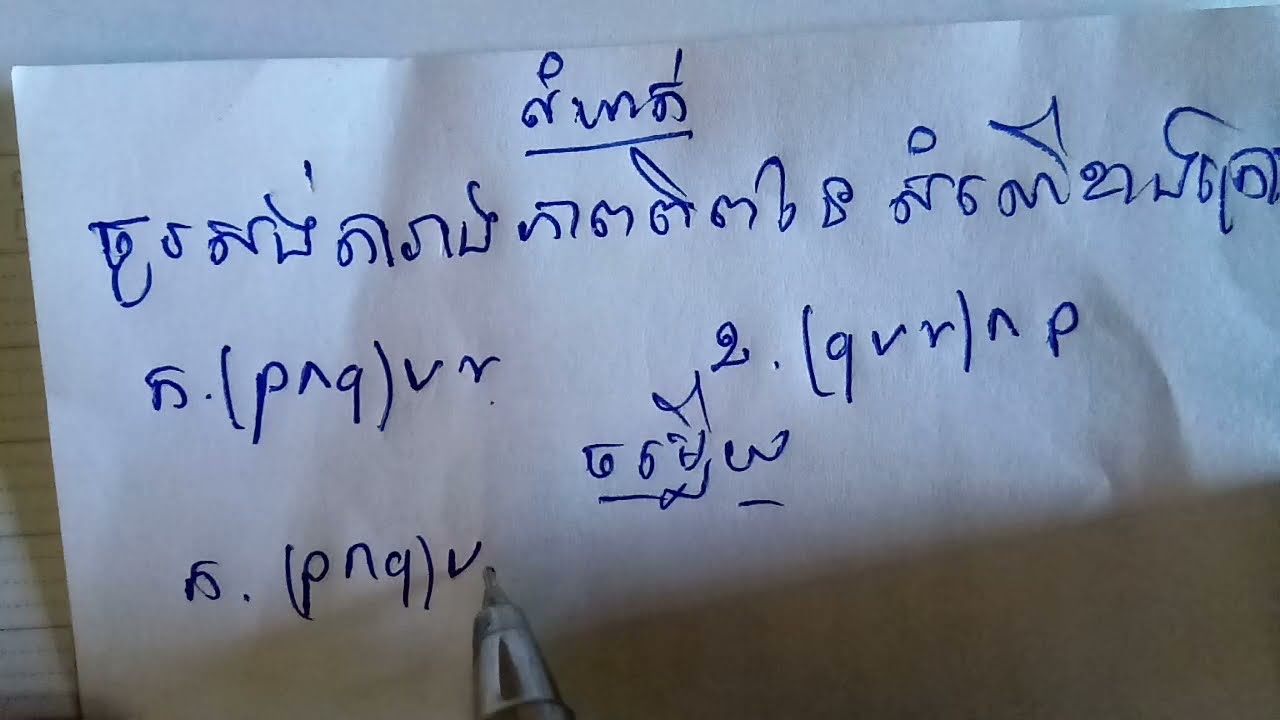 លំហាត់
ចូរសង់តារាងភាពពិតនៃ សំណើខាងក្រោ
ក.(p∧q)∨r. ខ.(q∨r)∧p
ចម្លើយ
ក. (p∧q)∨